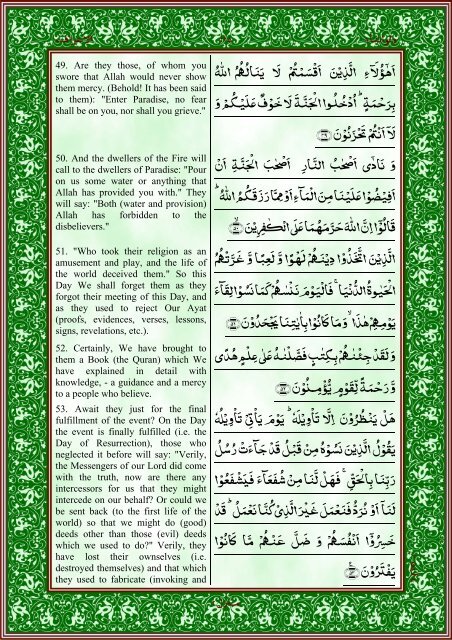 49. Are they those, of whom you
swore that Allah would never show
them mercy. (Behold! It has been said
to them): "Enter Paradise, no fear
shall be on you, nor shall you grieve."
اَهٰۤؤُلَآءِ الَّذِيْنَ اَقْسَمْتُمْ لَا يَنَالُهُمُ اللّٰهُ
بِرَحْمَةٍ ؕ اُدْخُلُوا الْجَنَّةَ لَا خَوْفٌ عَلَيْكُمْ وَ
لَاۤ اَنْتُمْ تَحْزَنُوْنَ ﴿۴۹﴾
50. And the dwellers of the Fire will
call to the dwellers of Paradise: "Pour
on us some water or anything that
Allah has provided you with." They
will say: "Both (water and provision)
Allah has forbidden to the
disbelievers."
وَ نَادٰۤى اَصْحٰبُ النَّارِ اَصْحٰبَ الْجَنَّةِ اَنْ
اَفِيْضُوْا عَلَيْنَا مِنَ الْمَآءِ اَوْ مِمَّا رَزَقَكُمُ اللّٰهُ ؕ
قَالُوْۤا اِنَّ اللّٰهَ حَرَّمَهُمَا عَلَى الْكٰفِرِيْنَ ﴿۵۰﴾
51. "Who took their religion as an
amusement and play, and the life of
the world deceived them." So this
Day We shall forget them as they
forgot their meeting of this Day, and
as they used to reject Our Ayat
(proofs, evidences, verses, lessons,
signs, revelations, etc.).
الَّذِيْنَ اتَّخَذُوْا دِيْنَهُمْ لَهْوًا وَّ لَعِبًا وَّ غَرَّتْهُمُ
الْحَيٰوةُ الدُّنْيَا ۚ فَالْيَوْمَ نَنْسٰىهُمْ كَمَا نَسُوْا لِقَآءَ
يَوْمِهِمْ هٰذَا ۙ وَ مَا كَانُوْا بِاٰيٰتِنَا يَجْحَدُوْنَ ﴿۵۱﴾
52. Certainly, We have brought to
them a Book (the Quran) which We
have explained in detail with
knowledge, - a guidance and a mercy
to a people who believe.
وَ لَقَدْ جِئْنٰهُمْ بِكِتٰبٍ فَصَّلْنٰهُ عَلٰى عِلْمٍ هُدًى
وَّ رَحْمَةً لِّقَوْمٍ يُّؤْمِنُوْنَ ﴿۵۲﴾
53. Await they just for the final
fulfillment of the event? On the Day
the event is finally fulfilled (i.e. the
Day of Resurrection), those who
neglected it before will say: "Verily,
the Messengers of our Lord did come
with the truth, now are there any
intercessors for us that they might
intercede on our behalf? Or could we
be sent back (to the first life of the
world) so that we might do (good)
deeds other than those (evil) deeds
which we used to do?" Verily, they
have lost their ownselves (i.e.
destroyed themselves) and that which
they used to fabricate (invoking and
هَلْ يَنْظُرُوْنَ اِلَّا تَاْوِيْلَهٗ ؕ يَوْمَ يَاْتِيْ تَاْوِيْلُهٗ
يَقُوْلُ الَّذِيْنَ نَسُوْهُ مِنْ قَبْلُ قَدْ جَآءَتْ رُسُلُ
رَبِّنَا بِالْحَقِّ ۚ فَهَلْ لَّنَا مِنْ شُفَعَآءَ فَيَشْفَعُوْا
لَنَاۤ اَوْ نُرَدُّ فَنَعْمَلَ غَيْرَ الَّذِيْ كُنَّا نَعْمَلُ ؕ قَدْ
خَسِرُوْۤا اَنْفُسَهُمْ وَ ضَلَّ عَنْهُمْ مَّا كَانُوْا
يَفْتَرُوْنَ ﴿۵۳﴾